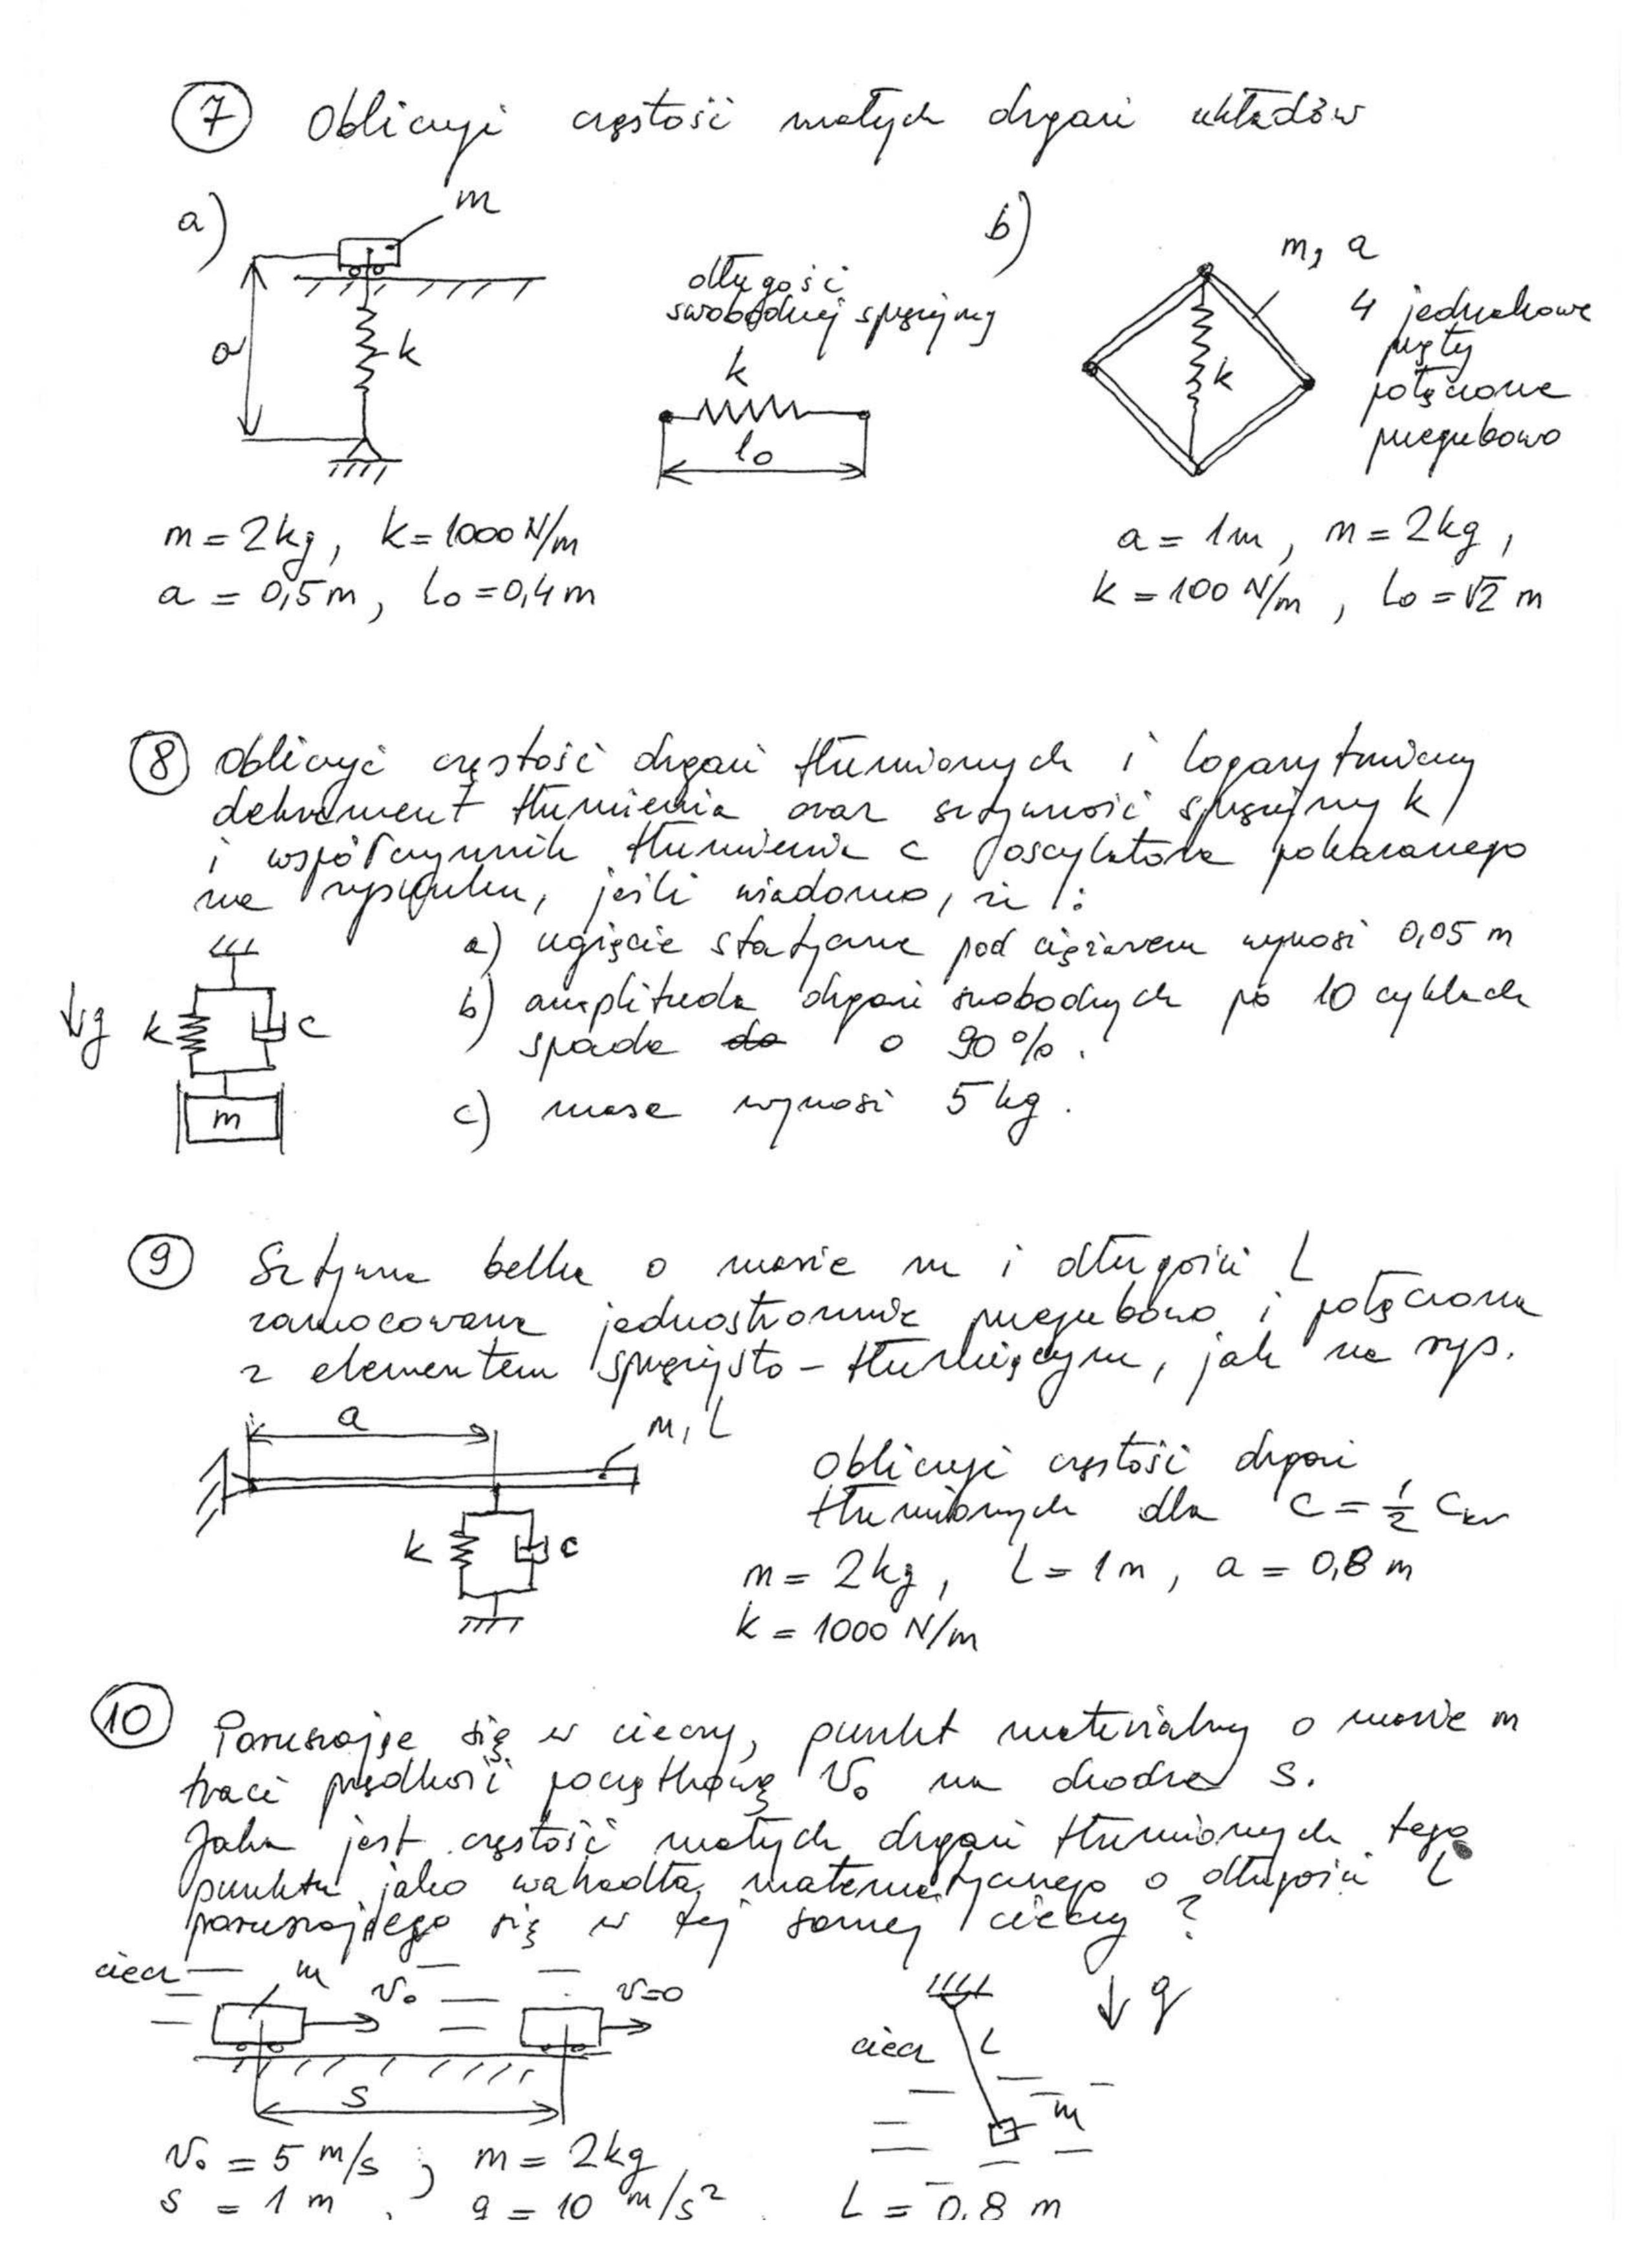 7 Obliczyć częstość małych drgań układów
a) m
a
k
długość
swobodnej sprężyny
k
l0
b) m, a
4 jednakowe
pręty
połączone
przegubowo
k
m = 2kg, k = 1000 N/m
a = 0,5 m, l0 = 0,4 m
a = 1m, m = 2kg,
k = 100 N/m, l0 = √2 m
8 Obliczyć częstość drgań tłumionych i logarytmiczny
dekrement tłumienia oraz sztywność sprężyny k
i współczynnik tłumienia c oscylatora pokazanego
na rysunku, jeśli wiadomo, że:
a) ugięcie statyczne pod ciężarem wynosi 0,05 m
b) amplituda drgań swobodnych po 10 cyklach
spada do o 90%.
c) masa wynosi 5 kg.
g k c
m
9 Sztywna belka o masie m i długości L
zamocowana jednostronnie przegubowo i połączona
z elementem sprężysto-tłumiącym, jak na rys.
a m, L
k c
Obliczyć częstość drgań
tłumionych dla c = 1/2 ckr
m = 2kg, L = 1m, a = 0,8 m
k = 1000 N/m
10 Poruszając się w cieczy, punkt materialny o masie m
traci prędkość początkową v0 na drodze s.
Jaka jest częstość małych drgań tłumionych tego
punktu jako wahadła matematycznego o długości L
poruszającego się w tej samej cieczy?
ciecz m v0 v=0
s
g
ciecz L
m
v0 = 5 m/s ; m = 2kg
s = 1 m , g = 10 m/s² , L = 0,8 m